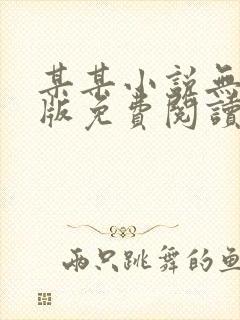 某某小説無
版免費閱讀
兩只跳舞的魚